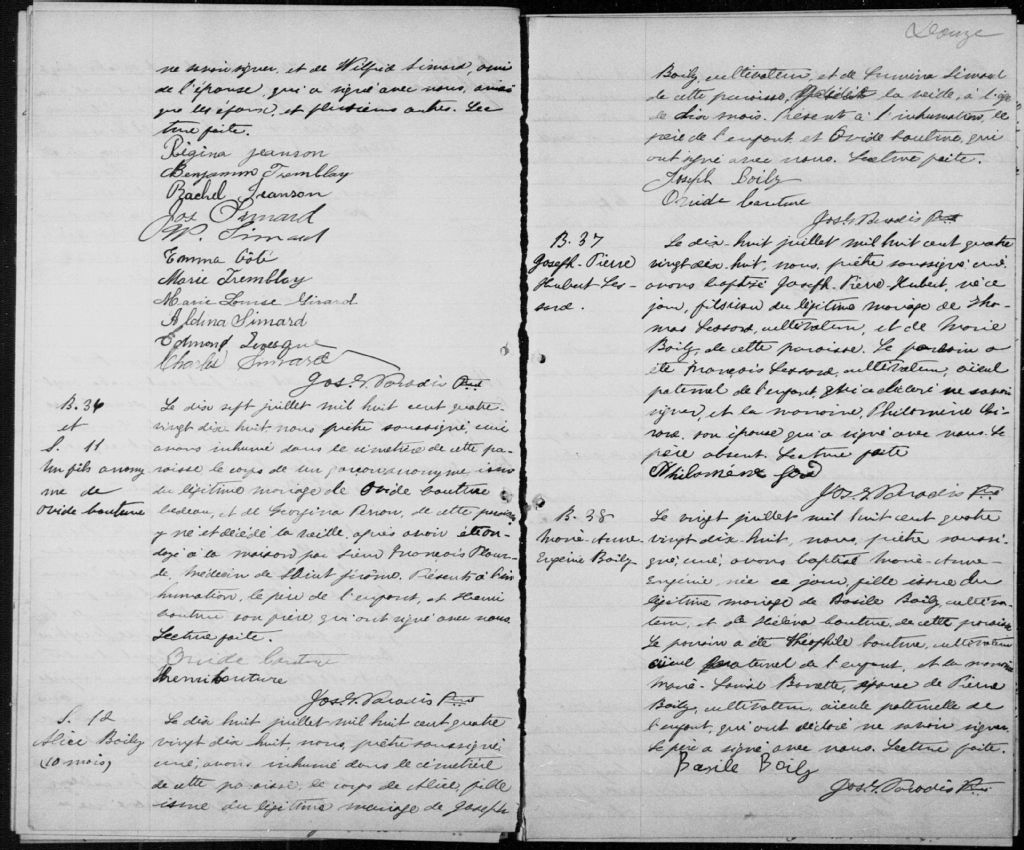 ne savoir signer, et de Wilfrid Simard, ami
de l'épouse, qui a signé avec nous, ainsi
que les époux, et plusieurs autres. Lec-
ture faite.
Régina Jeanson
Benjamin Tremblay
Rachel Jeanson
Jos Simard
W. Simard
Emma Côté
Marie Tremblay
Marie Louise Girard
Aldina Simard
Edmond Levesque
Charles Simard
Jos. G. Paradis Ptre
B. 36
et
S. 11
Un fils anony
me de
Ovide Couture
Le dix sept juillet mil huit cent quatre-
vingt dix huit nous prêtre soussigné, curé
avons inhumé dans le cimetière de cette pa-
roisse le corps de un garçon anonyme, issu
du légitime mariage de Ovide Couture
bedeau, et de Georgina Perron, de cette paroisse
y né et décédé la veille, après avoir été on-
doyé à la maison par Sieur François Plour-
de, médecin de Saint Jérôme. Présents à l'in
humation, le père de l'enfant, et Henri
Couture son frère, qui ont signé avec nous
Lecture faite.
Ovide Couture
Henri Couture
Jos. G. Paradis Ptre
S. 12
Alice Boily
(10 mois)
Le dix huit juillet mil huit cent quatre
vingt dix huit, nous, prêtre soussigné,
curé, avons inhumé dans le cimetière
de cette paroisse, le corps de Alice, fille
issue du légitime mariage de Joseph
Douze
Boily, cultivateur, et de Lumina Simard
de cette paroisse, décédée la veille, à l'âge
de dix mois. Présents à l'inhumation, le
père de l'enfant et Ovide Couture, qui
ont signé avec nous. Lecture faite.
Joseph Boily
Ovide Couture
Jos. G. Paradis Ptre
B. 37
Joseph-Pierre
Hubert Les-
sard.
Le dix-huit juillet mil huit cent quatre
vingt dix-huit, nous, prêtre soussigné curé
avons baptisé Joseph-Pierre-Hubert, né ce
jour, fils issu du légitime mariage de Tho-
mas Lessard, cultivateur, et de Marie
Boily, de cette paroisse. Le parrain a
été François Lessard, cultivateur, aïeul
paternel de l'enfant, qui a déclaré ne savoir
signer, et la marraine, Philomène Gi-
rard, son épouse qui a signé avec nous. Le
père absent. Lecture faite
Philomène
Jos. G. Paradis Ptre
B. 38
Marie-Anne-
Eugénie Boily
Le vingt juillet mil huit cent quatre
vingt dix-huit, nous, prêtre soussi-
gné, curé, avons baptisé Marie-Anne-
Eugénie, née ce jour, fille issue du
légitime mariage de Basile Boily, cultiva-
teur, et de Héléna Couture, de cette paroisse
Le parrain a été Théophile Couture, cultivateur
aïeul maternel de l'enfant, et la marraine
Marie-Louise Bouette, épouse de Pierre
Boily, cultivateur, aïeule paternelle de
l'enfant, qui ont déclaré ne savoir signer.
Le père a signé avec nous. Lecture faite.
Basile Boily
Jos. G. Paradis Ptre